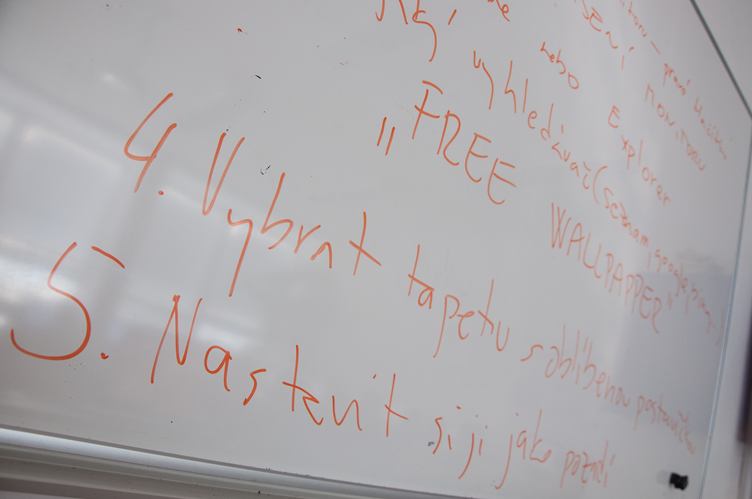 monitoru – pravé
nebo Explorer
vyhledávač (seznam, google,
"FREE WALLPAPPER"
4. Vybrat tapetu s oblíbenou postavičkou
5. Nastavit si ji jako pozadí